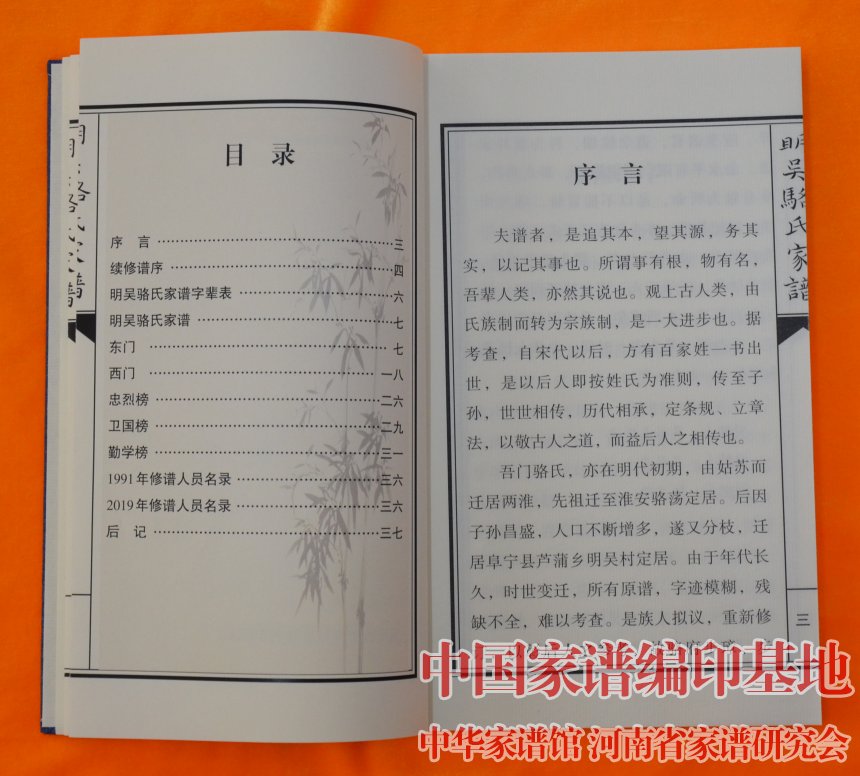 目 录
序 言 三
续修谱序 四
明吴骆氏家谱字辈表 六
明吴骆氏家谱 七
东门 七
西门 一八
忠烈榜 二六
卫国榜 二九
勤学榜 三一
1991年修谱人员名录 三六
2019年修谱人员名录 三六
后 记 三七
明吴駱氏家譜
序 言
夫谱者，是追其本，望其源，务其
实，以记其事也。所谓事有根，物有名，
吾辈人类，亦然其说也。观上古人类，由
氏族制而转为宗族制，是一大进步也。据
考查，自宋代以后，方有百家姓一书出
世，是以后人即按姓氏为准则，传至子
孙，世世相传，历代相承，定条规、立章
法，以敬古人之道，而益后人之相传也。
吾门骆氏，亦在明代初期，由姑苏而
迁居两淮，先祖迁至淮安骆荡定居。后因
子孙昌盛，人口不断增多，遂又分枝，迁
居阜宁县芦蒲乡明吴村定居。由于年代长
久，时世变迁，所有原谱，字迹模糊，残
缺不全，难以考查。是族人拟议，重新修
三
中国家谱编印基地
中华家谱馆 河南省家谱研究会